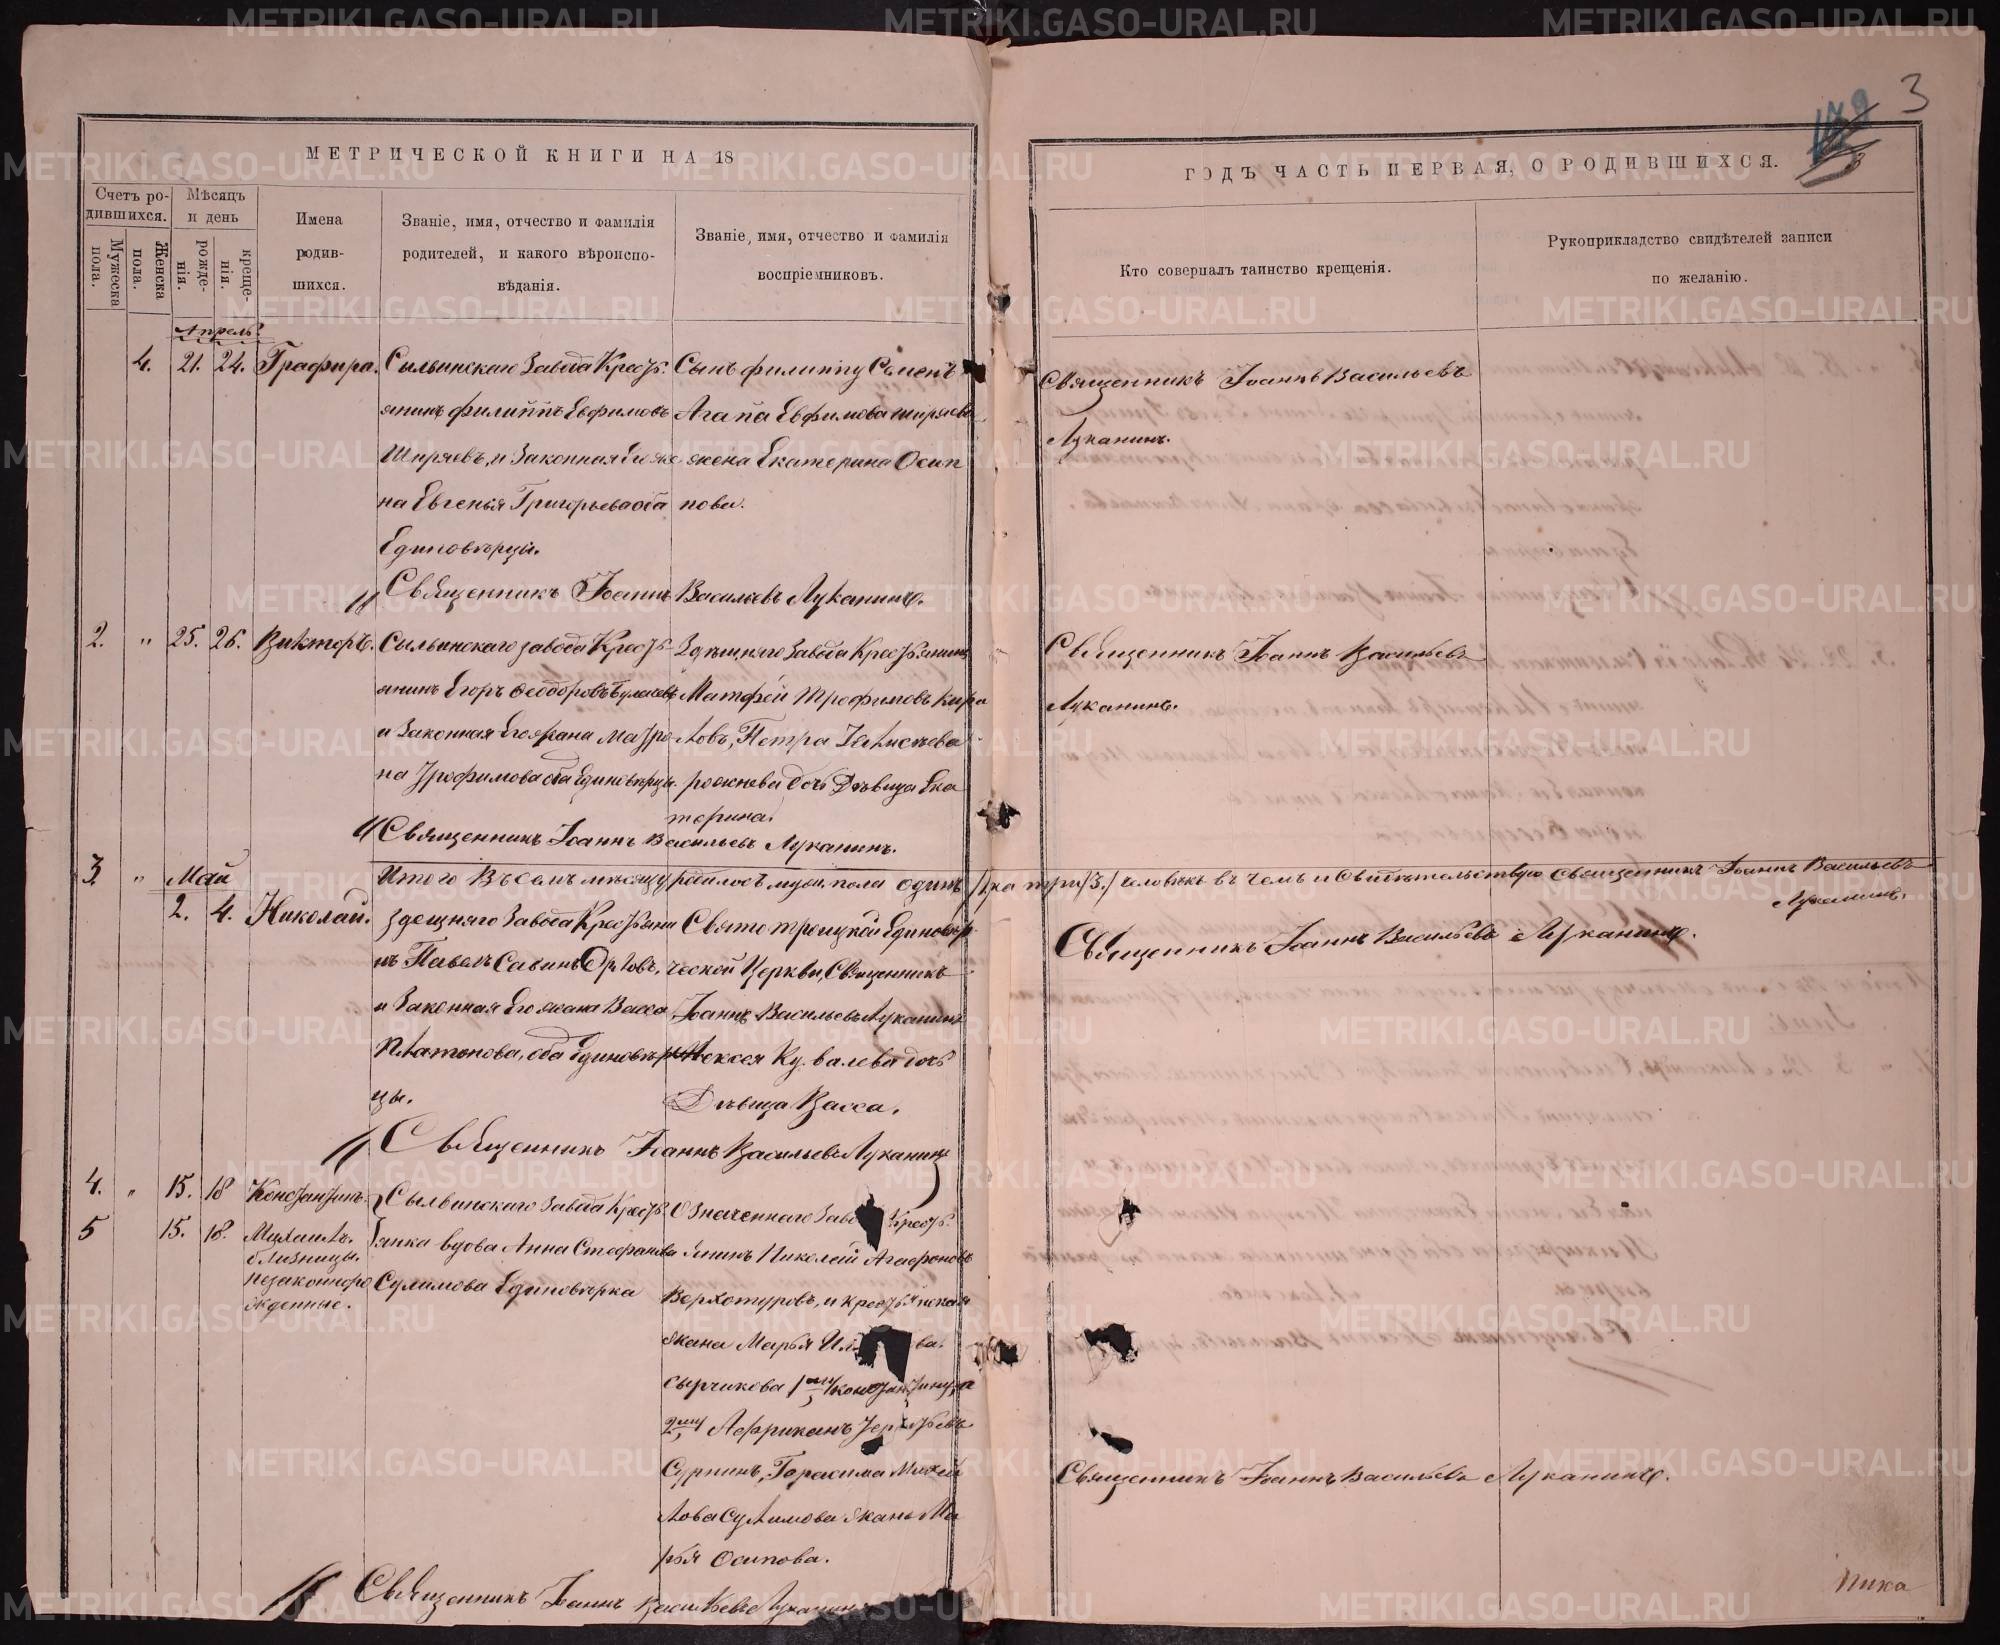 3
МЕТРИЧЕСКОЙ КНИГИ НА 18
ГОДЪ ЧАСТЬ ПЕРВАЯ, О РОДИВШИХСЯ.
Счетъ родившихся.
Мужеска пола.
Женска пола.
Мѣсяцъ и день
рожденія.
крещенія.
Имена родившихся.
Званіе, имя, отчество и фамилія
родителей, и какого вѣроисповѣданія.
Званіе, имя, отчество и фамилія
воспріемниковъ.
Кто совершалъ таинство крещенія.
Рукоприкладство свидѣтелей записи
по желанію.
Апрель
4. 21. 24. Графира.
Сылвинскаго Завода Крест
янинъ филиппъ Евфимовъ
Ширяевъ, и Законная Его же
на Евгенья Григорьева оба
Единоверцы.
Сынъ филиппу Семенъ
Агапа Евфимова ширяева
жена Екатерина Осип
пова.
Священникъ Іоаннъ Васильевъ
Луканинъ.
Священникъ Іоаннъ Васильевъ Луканинъ.
2. " 25. 26. Викторъ.
Сылвинскаго завода Крест
янинъ Егоръ Феодоровъ
и Законная Его жена Матро
на Трофимова оба Единоверцы.
Здешняго Завода Крестьянинъ
Матфей Трофимовъ Кири
ловъ, Петра
дочь Девица Ека
терина.
Священникъ Іоаннъ Васильевъ
Луканинъ.
Священникъ Іоаннъ Васильевъ Луканинъ.
Итого Въ семъ месяцу родилось муж. пола одинъ, /3./ человекъ въ чемъ и Свидетельствую Священникъ Іоаннъ Васильевъ
Луканинъ.
Май
3. " 2. 4. Николай.
Здешняго Завода Крестьяни
нъ Павелъ Савинъ Орловъ,
и Законная Его жена Васса
Платонова, оба Единовер
цы.
Свято троицкой Единовер
ческой Церкви, Священникъ
Іоаннъ Васильевъ Луканинъ
Алексея Ку. валева дочь
Девица Васса.
Священникъ Іоаннъ Васильевъ Луканинъ.
Священникъ Іоаннъ Васильевъ Луканинъ
4. " 15. 18 Константинъ.
5 15. 18. Михаилъ.
близнецы.
незаконноро
жденные.
Сылвинскаго Завода Крест
янка вдова Анна Стефанова
Сулимова Единоверка
Означеннаго Заво Крест
янинъ Николай Агафоновъ
Верхотуровъ, и крестьянская
жена Марья Ил ва.
сырчикова 1му Константину, а
2му Африканъ
Сурнинъ, Гарасима Михай
лова Сулимова жена Ма
рья Осипова.
Священникъ Іоаннъ Васильевъ Луканинъ.
Священникъ Іоаннъ Васильевъ Луканинъ
METRIKI.GASO-URAL.RU